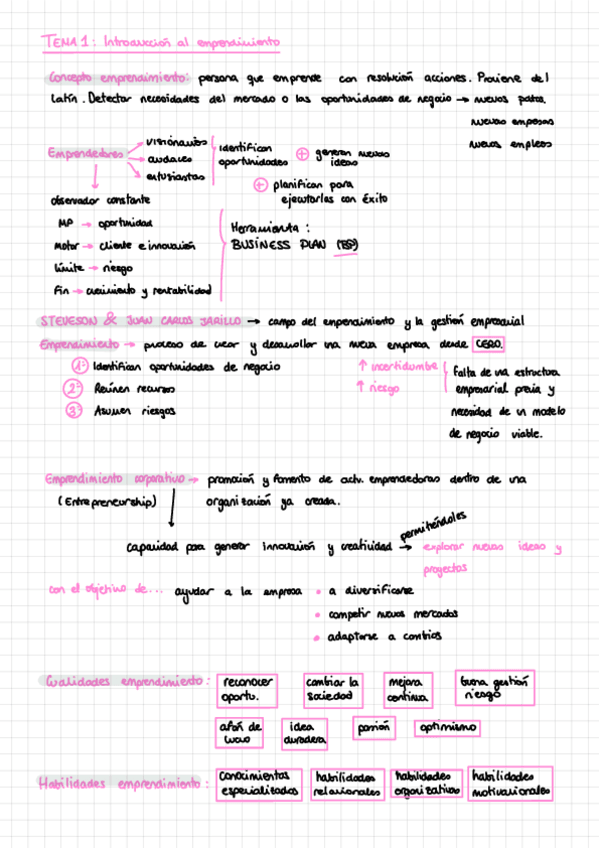 TEMA 1: Introducción al emprendimiento
Concepto emprendimiento: persona que emprende con resolución acciones. Proviene del
latín. Detectar necesidades del mercado o las oportunidades de negocio → nuevos
nuevas empresas
nuevos empleos
Emprendedores → visionarios
→ audaces
→ entusiastas
Identifican
oportunidades
+ generan nuevas
ideas
+ planifican para
ejecutarlas con éxito
observador constante
MP → oportunidad
Motor → cliente e innovación
Límite → riesgo
Fin → crecimiento y rentabilidad
Herramienta:
BUSINESS PLAN (BP)
STEVESON & JUAN CARLOS JARILLO → campo del emprendimiento y la gestión empresarial
Emprendimiento → proceso de crear y desarrollar una nueva empresa desde CERO.
1º Identifican oportunidades de negocio
2º Reúnen recursos
3º Asumen riesgos
↑ incertidumbre
↑ riesgo
falta de una estructura
empresarial previa y
necesidad de un modelo
de negocio viable.
Emprendimiento corporativo → promoción y fomento de actv. emprendedoras dentro de una
(Entrepreneurship)
organización ya creada.
capacidad para generar innovación y creatividad → permitiéndoles explorar nuevas ideas y
proyectos
con el objetivo de... ayudar a la empresa • a diversificarse
• competir nuevos mercados
• adaptarse a cambios
Cualidades emprendimiento: reconocer
oportu.
cambiar la
sociedad
mejora
continua
buena gestión
riesgo
afán de
lucro
idea
duradera
pasión
optimismo
Habilidades emprendimiento: conocimientos
especializados
habilidades
relacionales
habilidades
organizativas
habilidades
motivacionales